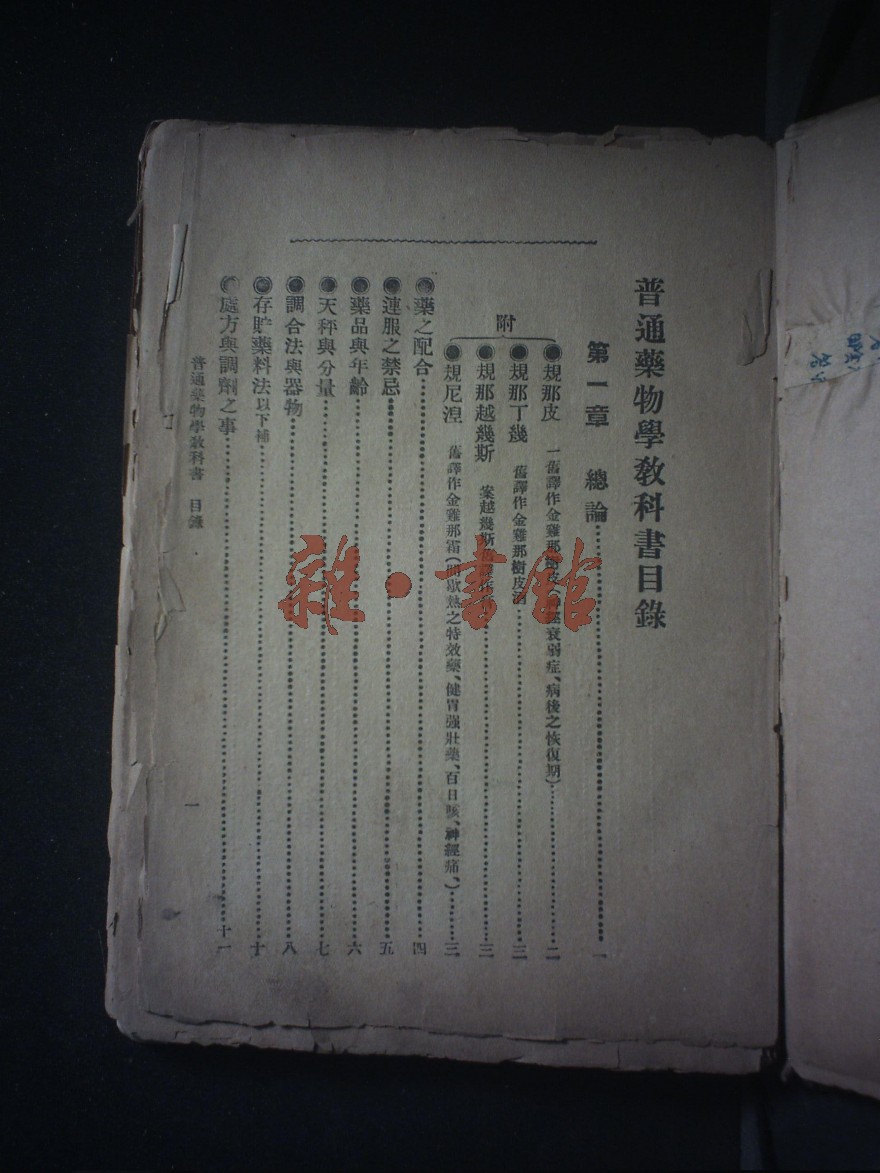 普通藥物學敎科書目錄
第一章　總論………一
附
●規那皮　一舊譯作金雞那樹皮 衰弱症、病後之恢復期）………二
●規那丁幾　舊譯作金雞那樹皮酒………三
●規那越幾斯　案越幾斯舊譯作………三
●規尼湼　舊譯作金雞那霜（間歇熱之特效藥、健胃强壯藥、百日咳、神經痛、）………三
●藥之配合………四
●連服之禁忌………五
●藥品與年齡………六
●天秤與分量………七
●調合法與器物………八
●存貯藥料法以下補………十
●處方與調劑之事………十一
普通藥物學敎科書　目錄
一
雜·書館